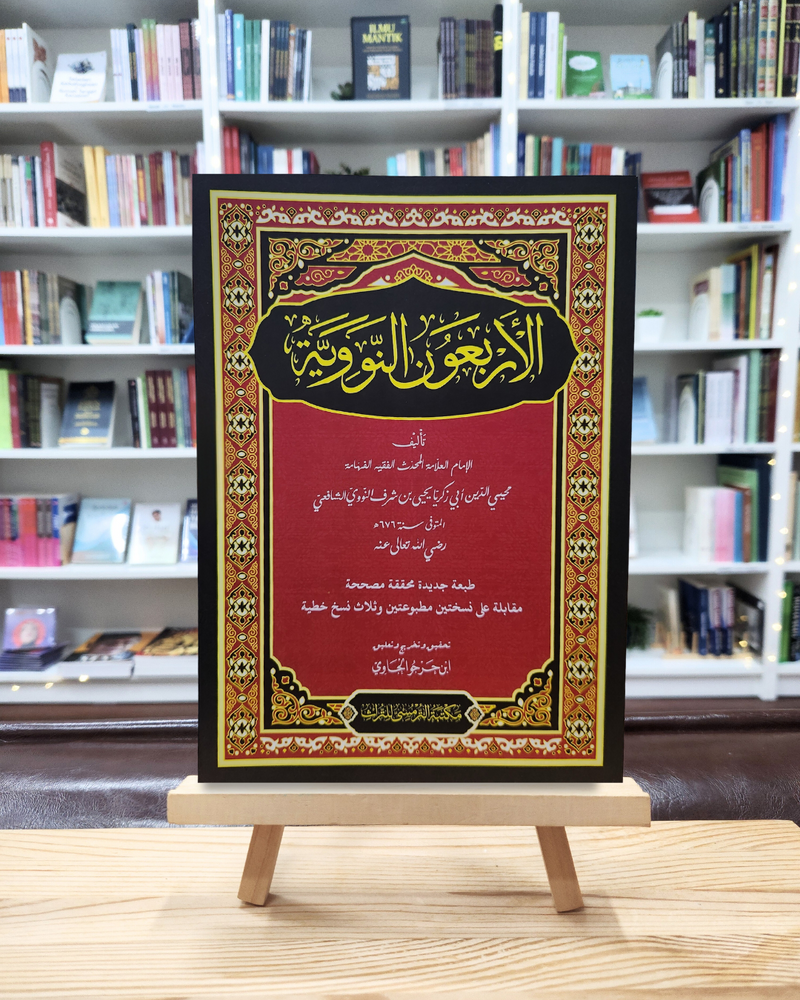 ILMU
MANTIK
الأَرْبَعُونَ النَّوَوِيَّةُ
تأليف
الإمام العلامة المحدث الفقيه الفهامة
محيي الدين أبي زكريا يحيى بن شرف النووي الشافعي
المتوفى سنة ٦٧٦ه
رضي الله تعالى عنه
طبعة جديدة محققة مصححة
مقابلة على نسختين مطبوعتين وثلاث نسخ خطية
تحقيق وتخريج وتعليق
ابن حرجو الجاوي
مكتبة الترمسي للتراث